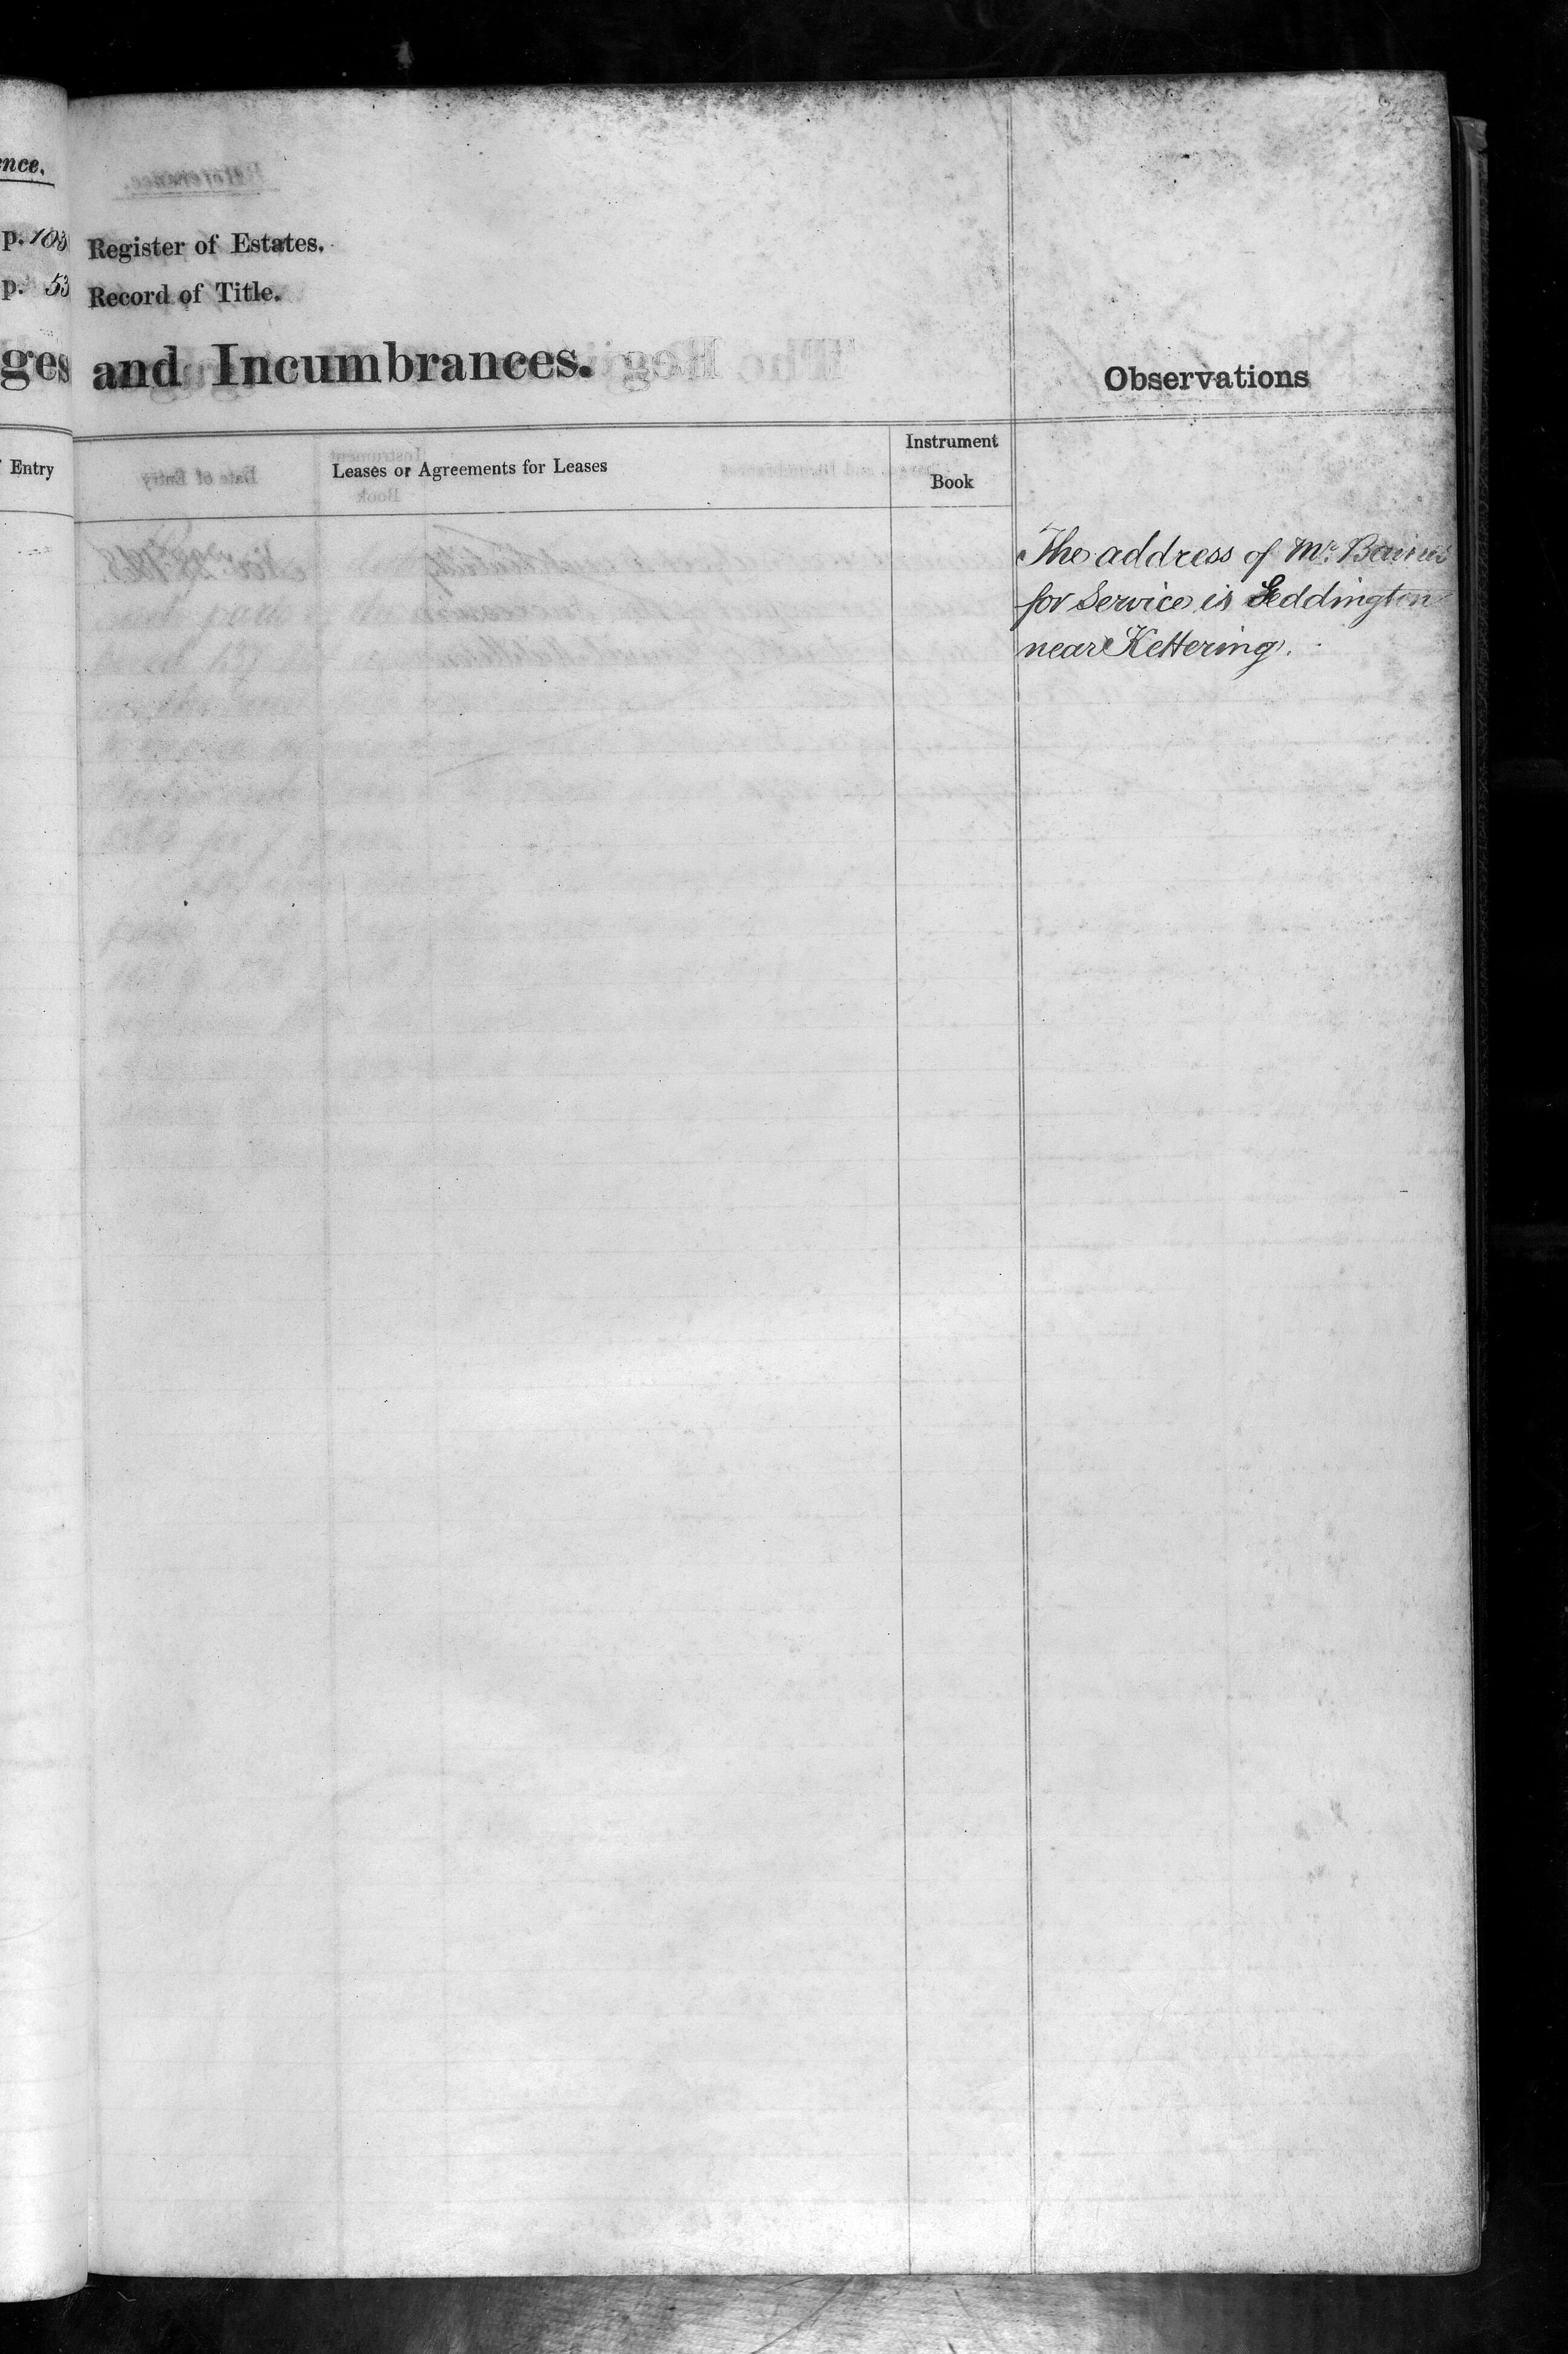 nce.
p. 103
p. 53
ges
Entry
Register of Estates.
Record of Title.
and Incumbrances.
Observations
Leases or Agreements for Leases
Instrument
Book
The address of Mr. Baines
for Service is Geddington
near Kettering.